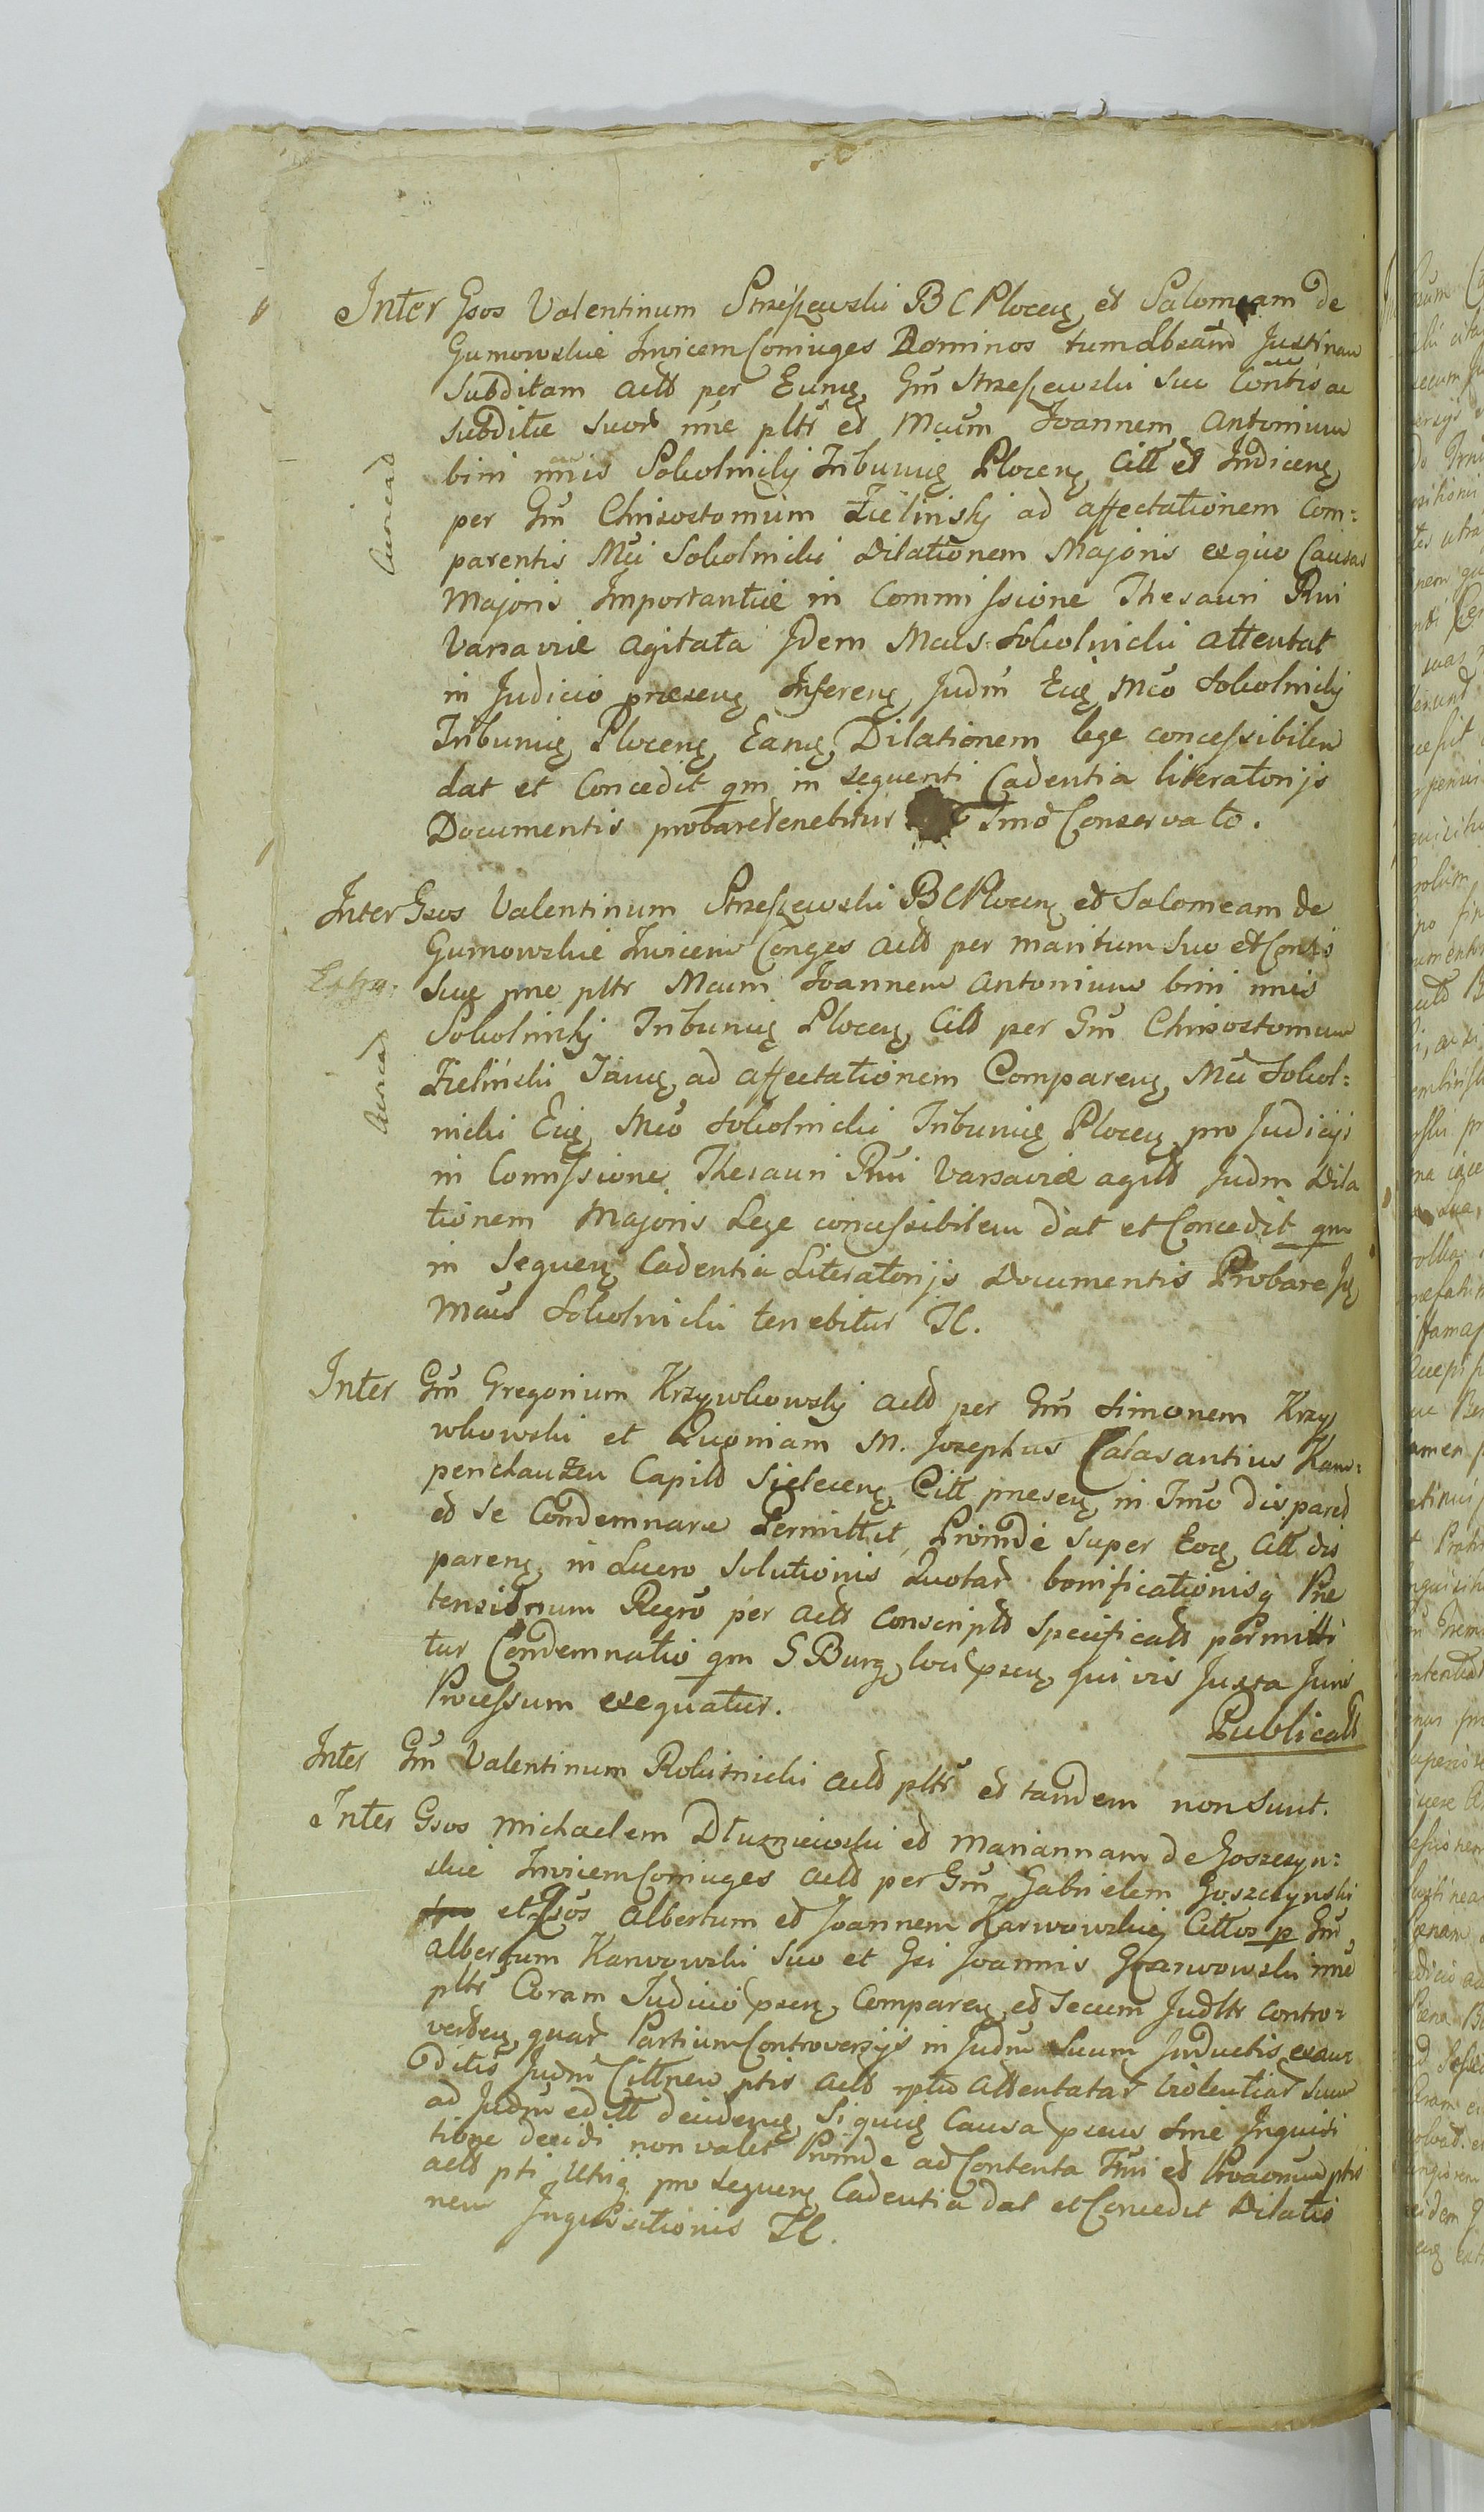 Inter Gsos Valentinum Strzeszewski B C Plocen et Salomeam de
Gumowskie Invicem Coniuges Dominos tum Justinam
Subditam actt per Eund Gm Strzeszewski suo Contis ac
subditæ suor nne pltr et Mcum Joannem Antonium
bini nnis Sokolnickj Tribunu Plocen Citt et Indicen
per Gm Chrisostomum Zielinskj ad affectationem Com:
parentis Mci Sokolnicki Dilationem Majoris ex quo Causas
Majoris Importantiæ in Commissione Thesauri Rni
Varsaviæ agitata Idem Mcus Sokolnicki attentat
in Judicio præsen Inferen Judm Eid Mco Sokolnickj
Tribunu Plocen Eand Dilationem lege concessibilem
dat et Concedit qm in sequenti Cadentia literatorijs
Documentis probare tenebitur Tmo Conservato.
Inter Gsos Valentinum Strzeszewski B C Plocen et Salomeam de
Gumowskie Invicem Conges actt per maritum suo et Contis
Extra:
suæ nne pltr Mcum Joannem Antonium bini nnis
Sokolnickj Tribunu Plocen Citt per Gm Chrisostomum
Zieliński ad affectationem Comparen Mci Sokol:
nicki Eid Mco Sokolnicki Tribunu Plocen pro Judicijs
in Comissione Thesauri Rni Varsaviæ agitt Judm Dila
tionem Majoris Lege concessibilem dat et Concedit qm
in Sequen Cadentia Literatorijs Documentis Probare
Mcus Sokolnicki tenebitur Tl.
Inter Gm Gregorium Krzywkowskj actt per Gm Simonem Krzy
wkowski et Quoniam M. Josephus Calasantius Kam:
penchauzen Capitt Sielecen Citt præsen in Tmo dispared
et se Condemnare Permittit, Proinde super Eod Citt dis
paren in Lucro Solutionis Quotar bonificationisq Præ
tensionum Regro per actt Conscriptt specificatt permitti
tur Condemnatio qm S Burg loci psen qui vis Juxta Juris
Processum exequatur.
Publicatt
Inter Gm Valentinum Rokitnicki actt pltr et tandem non sunt.
Inter Gsos Michaelem Dłuzniewski et Mariannam de Goszczyn:
skie Invicem Coniuges actt per Gm Gabrielem Goszczynski
et Gsos Albertum et Joannem Karwowskie Cittos p Gm
Albertum Karwowski suo et Gsi Joannis Karwowski nne
pltr Coram Judicio psen Comparen et secum Judltr Contro:
verten quar Partium Controversijs in Judm suum Inductis exau
ditis Judm Cittnem ptis actt attentatar violentiar suum
ad Judm et decidend siquid Causa psens sine Inquisi
tione decidi non valet Proinde ad Contenta Tmi et ptis
actt pti Utriq pro sequen Cadentia dat et Concedit Dilatio
nem Inquisitionis Tl.